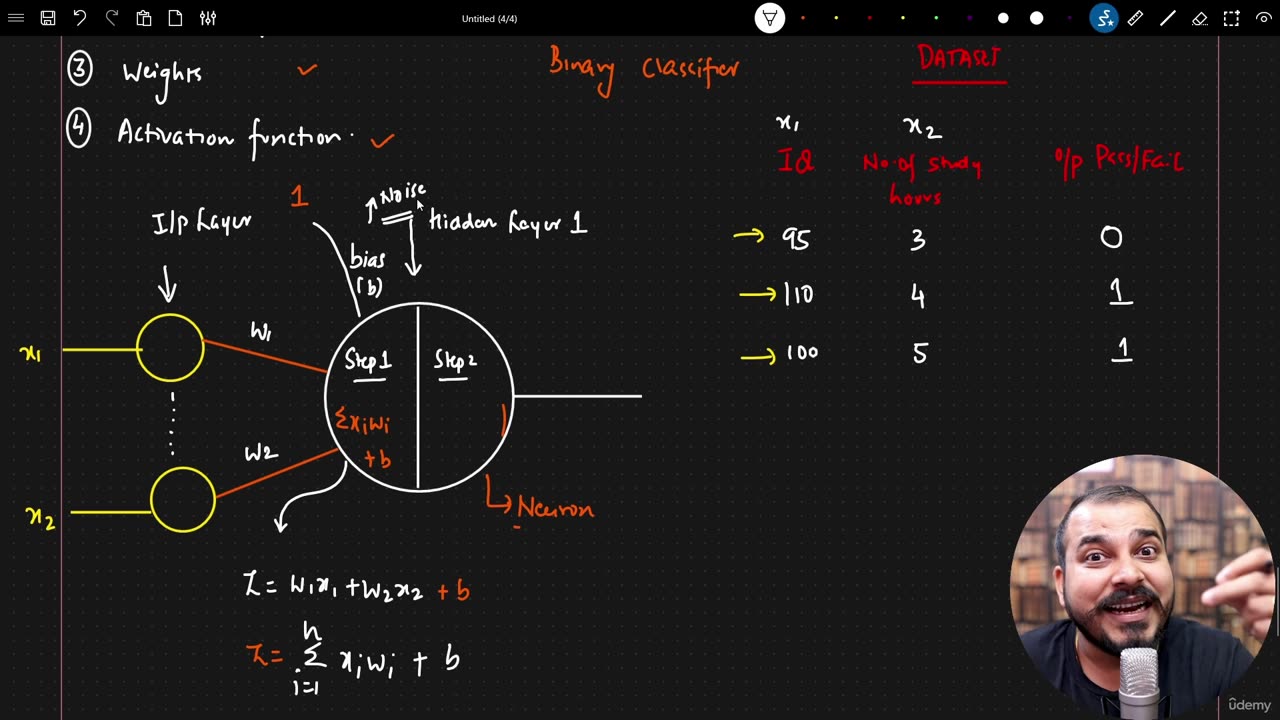 Untitled (4/4)
③ Weights
④ Activation function.
Binary Classifier
DATASET
x1 x2
IQ No. of study hours O/p Pass/Fail
95 3 0
110 4 1
100 5 1
I/p Layer
1
Noise
Hidden Layer 1
bias
(b)
x1
W1
Step1
Step2
Σxiwi
+b
W2
x2
Neuron
Z = W1x1 + W2x2 + b
n
Z = Σ xiwi + b
i=1
ûdemy